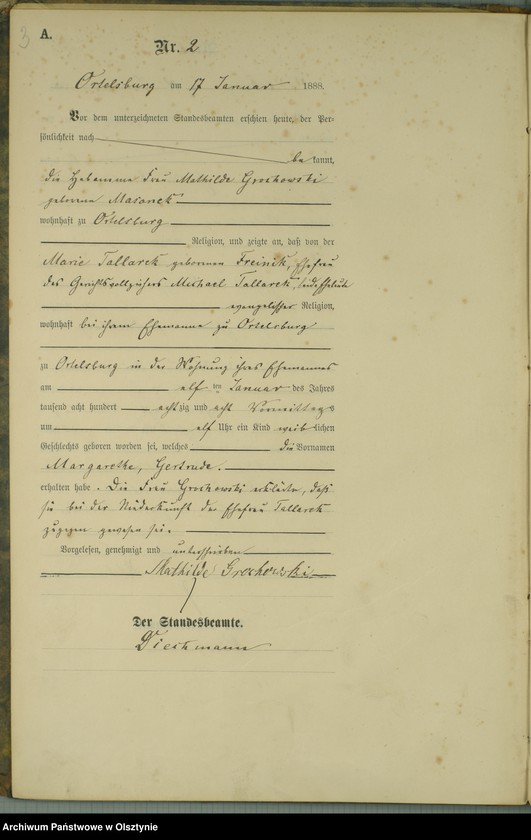 3
A.
Nr. 2
Ortelsburg am 17 Januar 1888.
Vor dem unterzeichneten Standesbeamten erschien heute, der Per-
sönlichkeit nach
be kannt,
die Hebamme Frau Mathilde Grochowski
geborene Masanek
wohnhaft zu Ortelsburg
Religion, und zeigte an, daß von der
Marie Tallarek geborenen Freinik, Ehefrau
des Gerichtsvollziehers Michael Tallarek,
evangelischer Religion,
wohnhaft bei ihrem Ehemanne zu Ortelsburg
zu Ortelsburg in der Wohnung ihres Ehemannes
am elf ten Januar des Jahres
tausend acht hundert achtzig und acht Vormittags
um elf Uhr ein Kind weiblichen
Geschlechts geboren worden sei, welches die Vornamen
Margarethe, Gertrude.
erhalten habe. Die Frau Grochowski erklärte, daß
sie bei der Niederkunft der Ehefrau Tallarek
zugegen gewesen sei.
Vorgelesen, genehmigt und unterschrieben
Mathilde Grochowski
Der Standesbeamte.
Diechmann
Archiwum Państwowe w Olsztynie